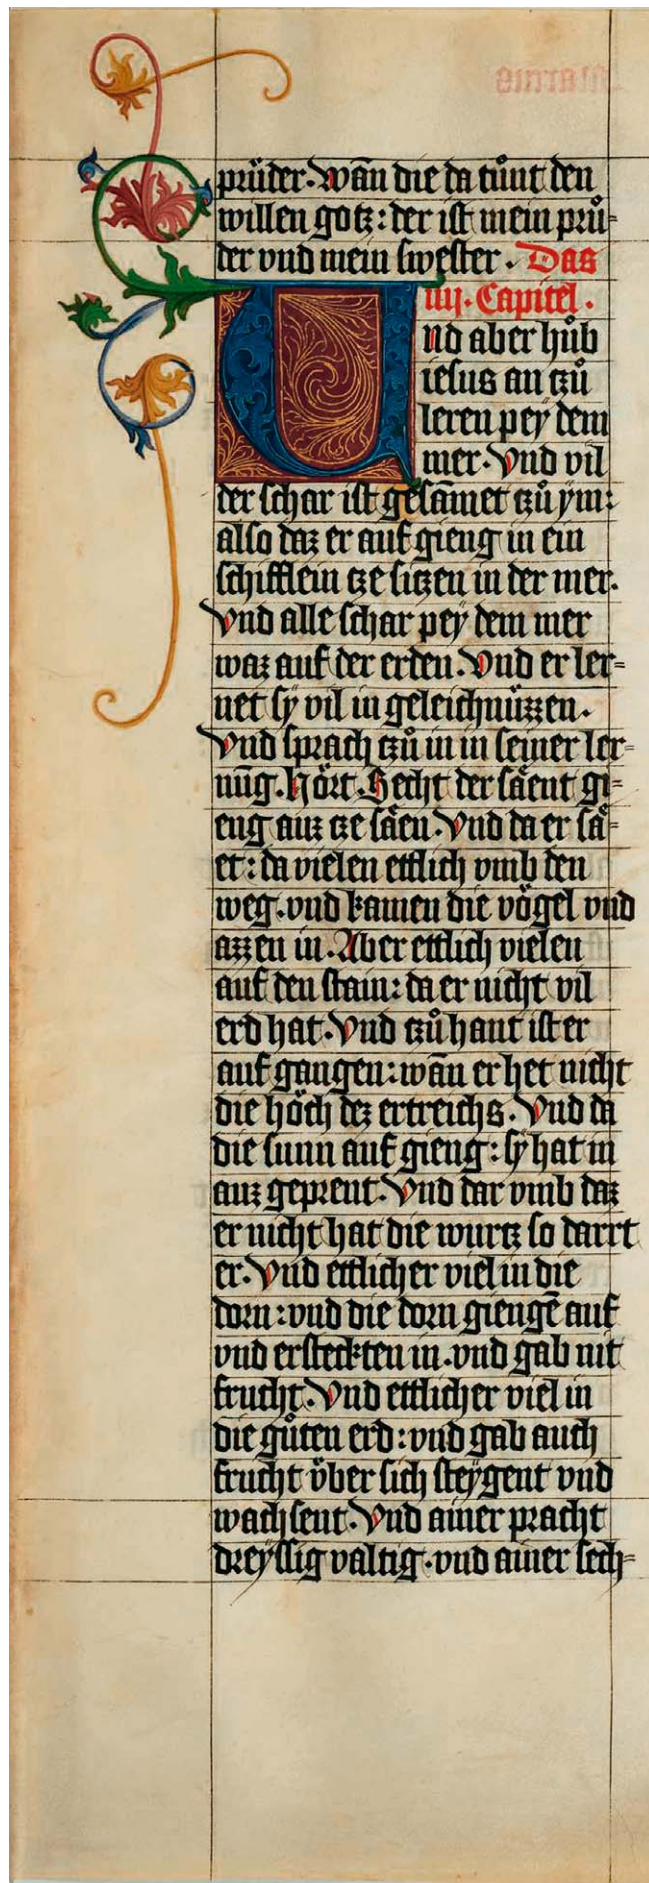 prüder. Wān die da tůnt den
willen gotz: der ist mein prů-
der vnd mein swester. Das
iiij. Capitel.
Und aber hůb
iesus an tzů
leren pey dem
mer. Vnd vil
der schar ist gesāmet tzů ym:
also daz er auf gieng in ein
schifflein tze sitzen in der mer.
Vnd alle schar pey dem mer
waz auf der erden. Vnd er ler-
net sÿ vil in geleichnüzzen.
Vnd sprach tzů in in seiner ler-
nūg. Hört. Secht der säent gi-
eng auz tze säen. Vnd da er sä-
et: da vielen ettlich vmb den
weg. vnd kamen die vögel vnd
azzen in. Aber ettlich vielen
auf den stain: da er nicht vil
erd hat. Vnd tzů hant ist er
auf gangen: wān er het nicht
die höch dez ertreichs. Vnd da
die sunn auf gieng: sÿ hat in
auz geprent. Vnd dar vmb daz
er nicht hat die wurtz so darrt
er. Vnd ettlicher viel in die
dorn: vnd die dorn giengē auf
vnd ersteckten in. vnd gab nit
frucht. Vnd ettlicher viel in
die gůten erd: vnd gab auch
frucht über sich steÿgent vnd
wachsent. Vnd ainer pracht
dreÿssig valtig. vnd ainer sech-